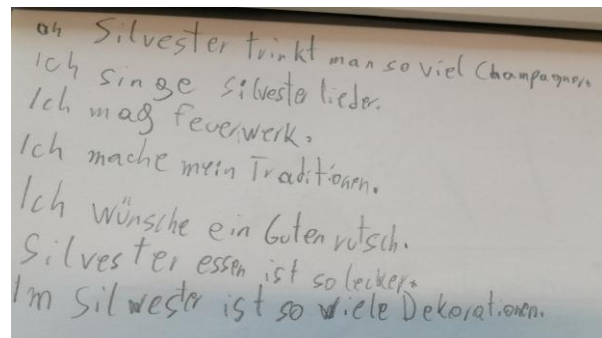 an Silvester trinkt man so viel Champagner.
Ich singe silvester lieder.
Ich mag feuerwerk.
Ich mache mein Traditionen.
Ich wünsche ein Guten rutsch.
Silvester essen ist so lecker.
Im Silwester ist so viele Dekorationen.